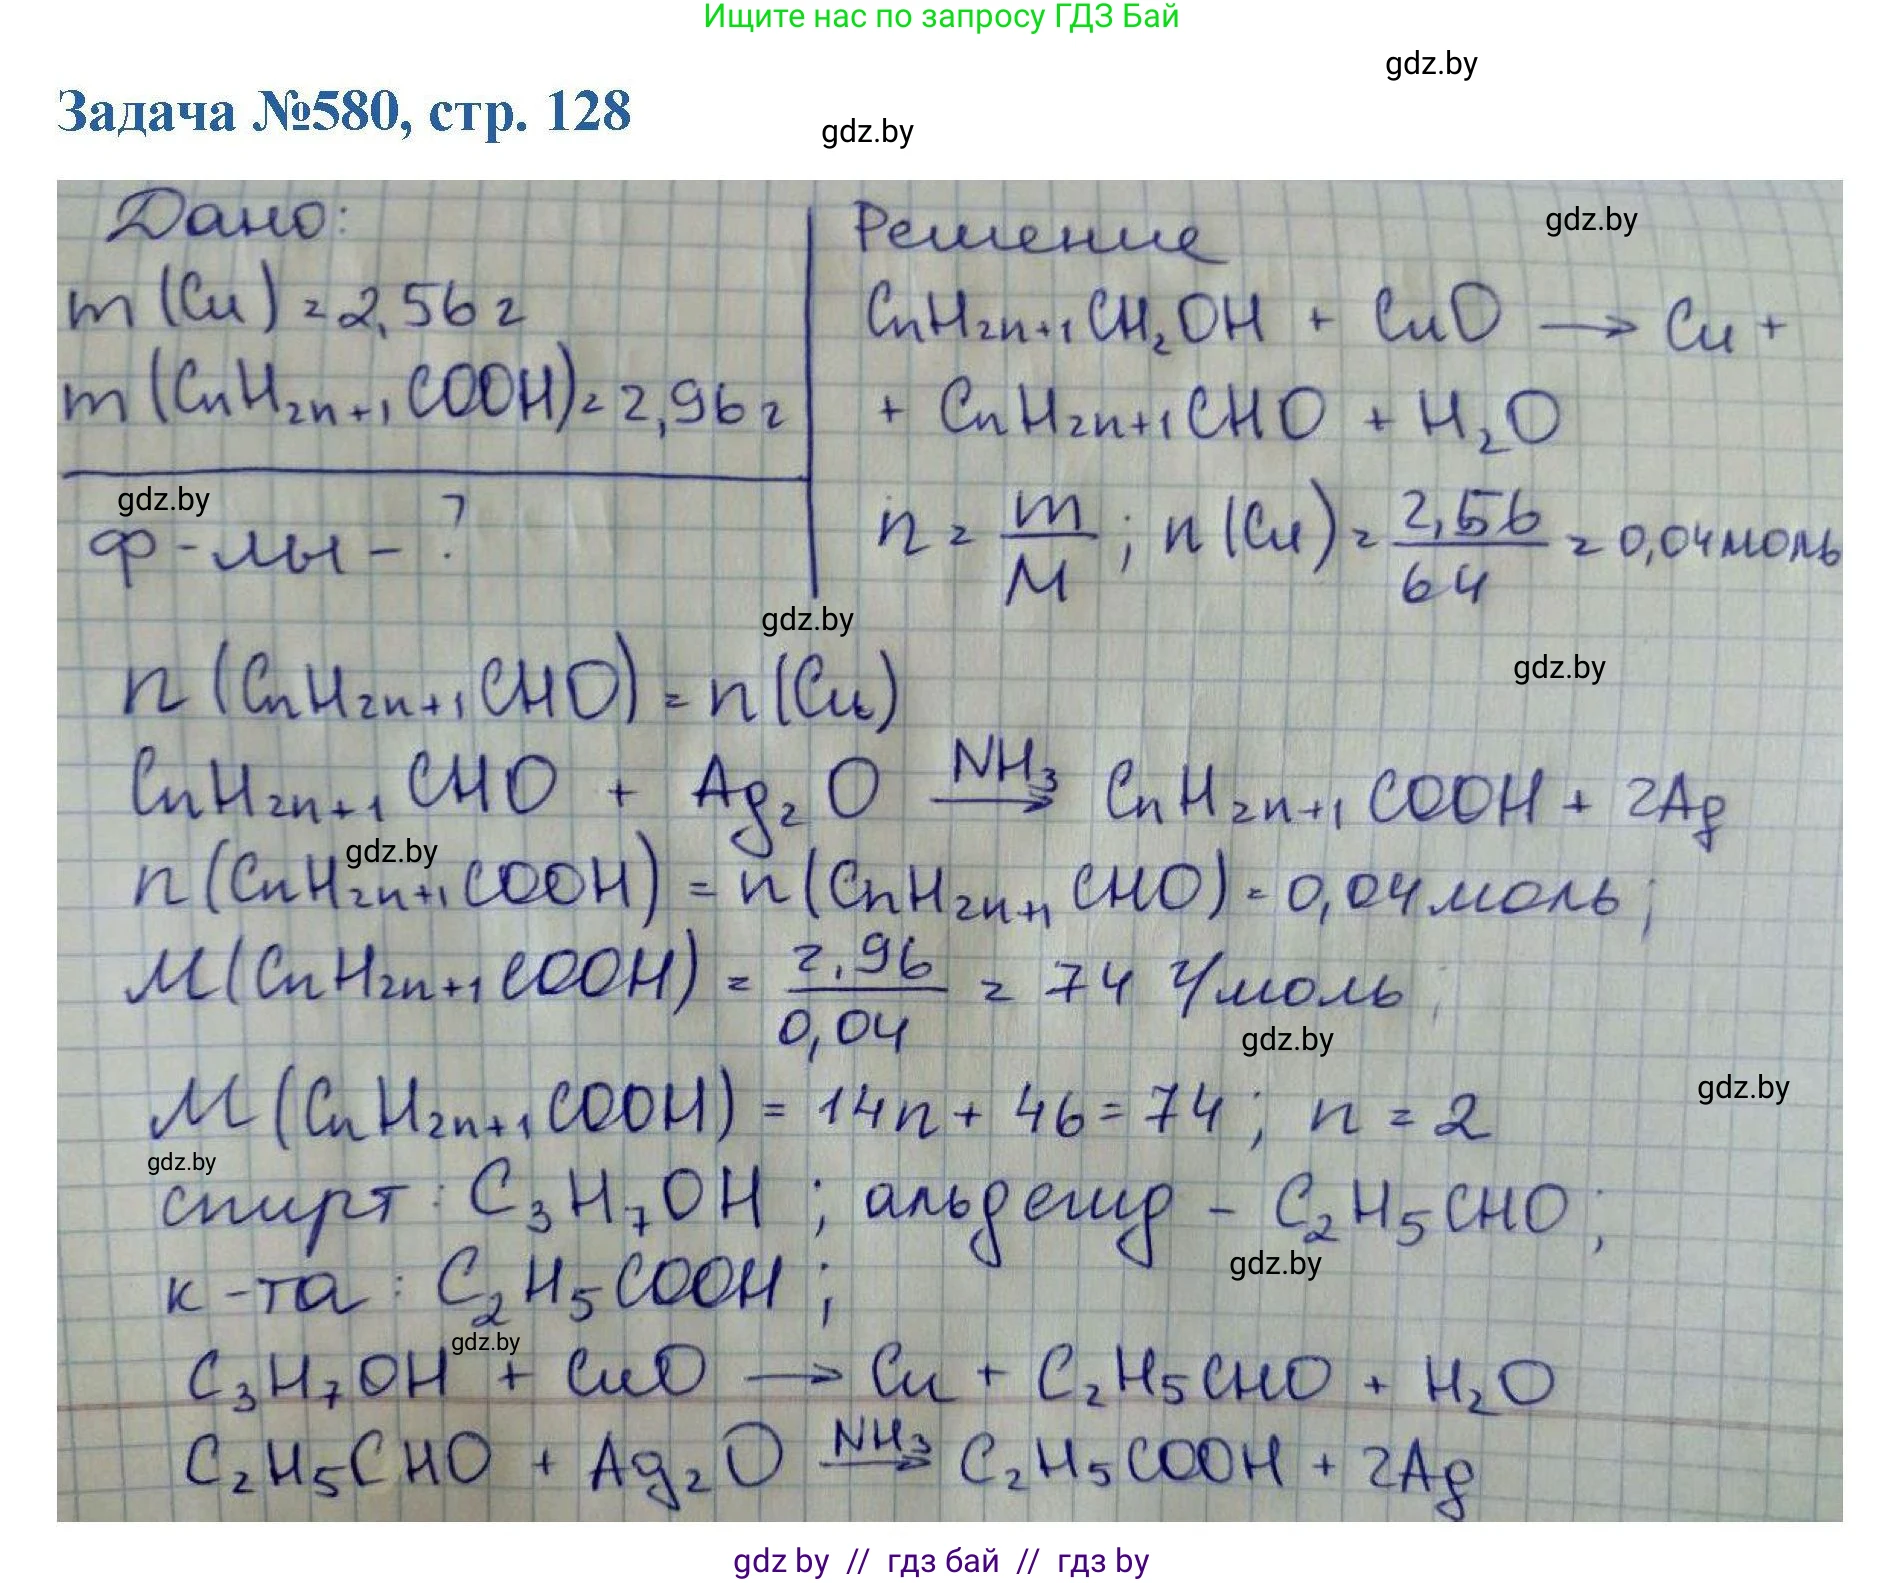 Ищите нас по запросу ГДЗ Бай
gdz.by
Задача №580, стр. 128
gdz.by
Дано:
m (Cu) = 2,56 г
m (CnH2n+1COOH) = 2,96 г
gdz.by
ф-лы - ?
Решение
gdz.by
CnH2n+1CH2OH + CuO → Cu +
+ CnH2n+1CHO + H2O
n = m/M ; n (Cu) = 2,56/64 = 0,04 моль
gdz.by
gdz.by
n (CnH2n+1CHO) = n (Cu)
CnH2n+1CHO + Ag2O NH3→ CnH2n+1COOH + 2Ag
gdz.by
n (CnH2n+1COOH) = n (CnH2n+1CHO) = 0,04 моль;
M (CnH2n+1COOH) = 2,96/0,04 = 74 г/моль;
gdz.by
gdz.by
M (CnH2n+1COOH) = 14n + 46 = 74 ; n = 2
gdz.by
спирт: C3H7OH ; альдегид - C2H5CHO;
gdz.by
к-та: C2H5COOH ;
gdz.by
C3H7OH + CuO → Cu + C2H5CHO + H2O
C2H5CHO + Ag2O NH3→ C2H5COOH + 2Ag
gdz by // гдз бай // гдз by